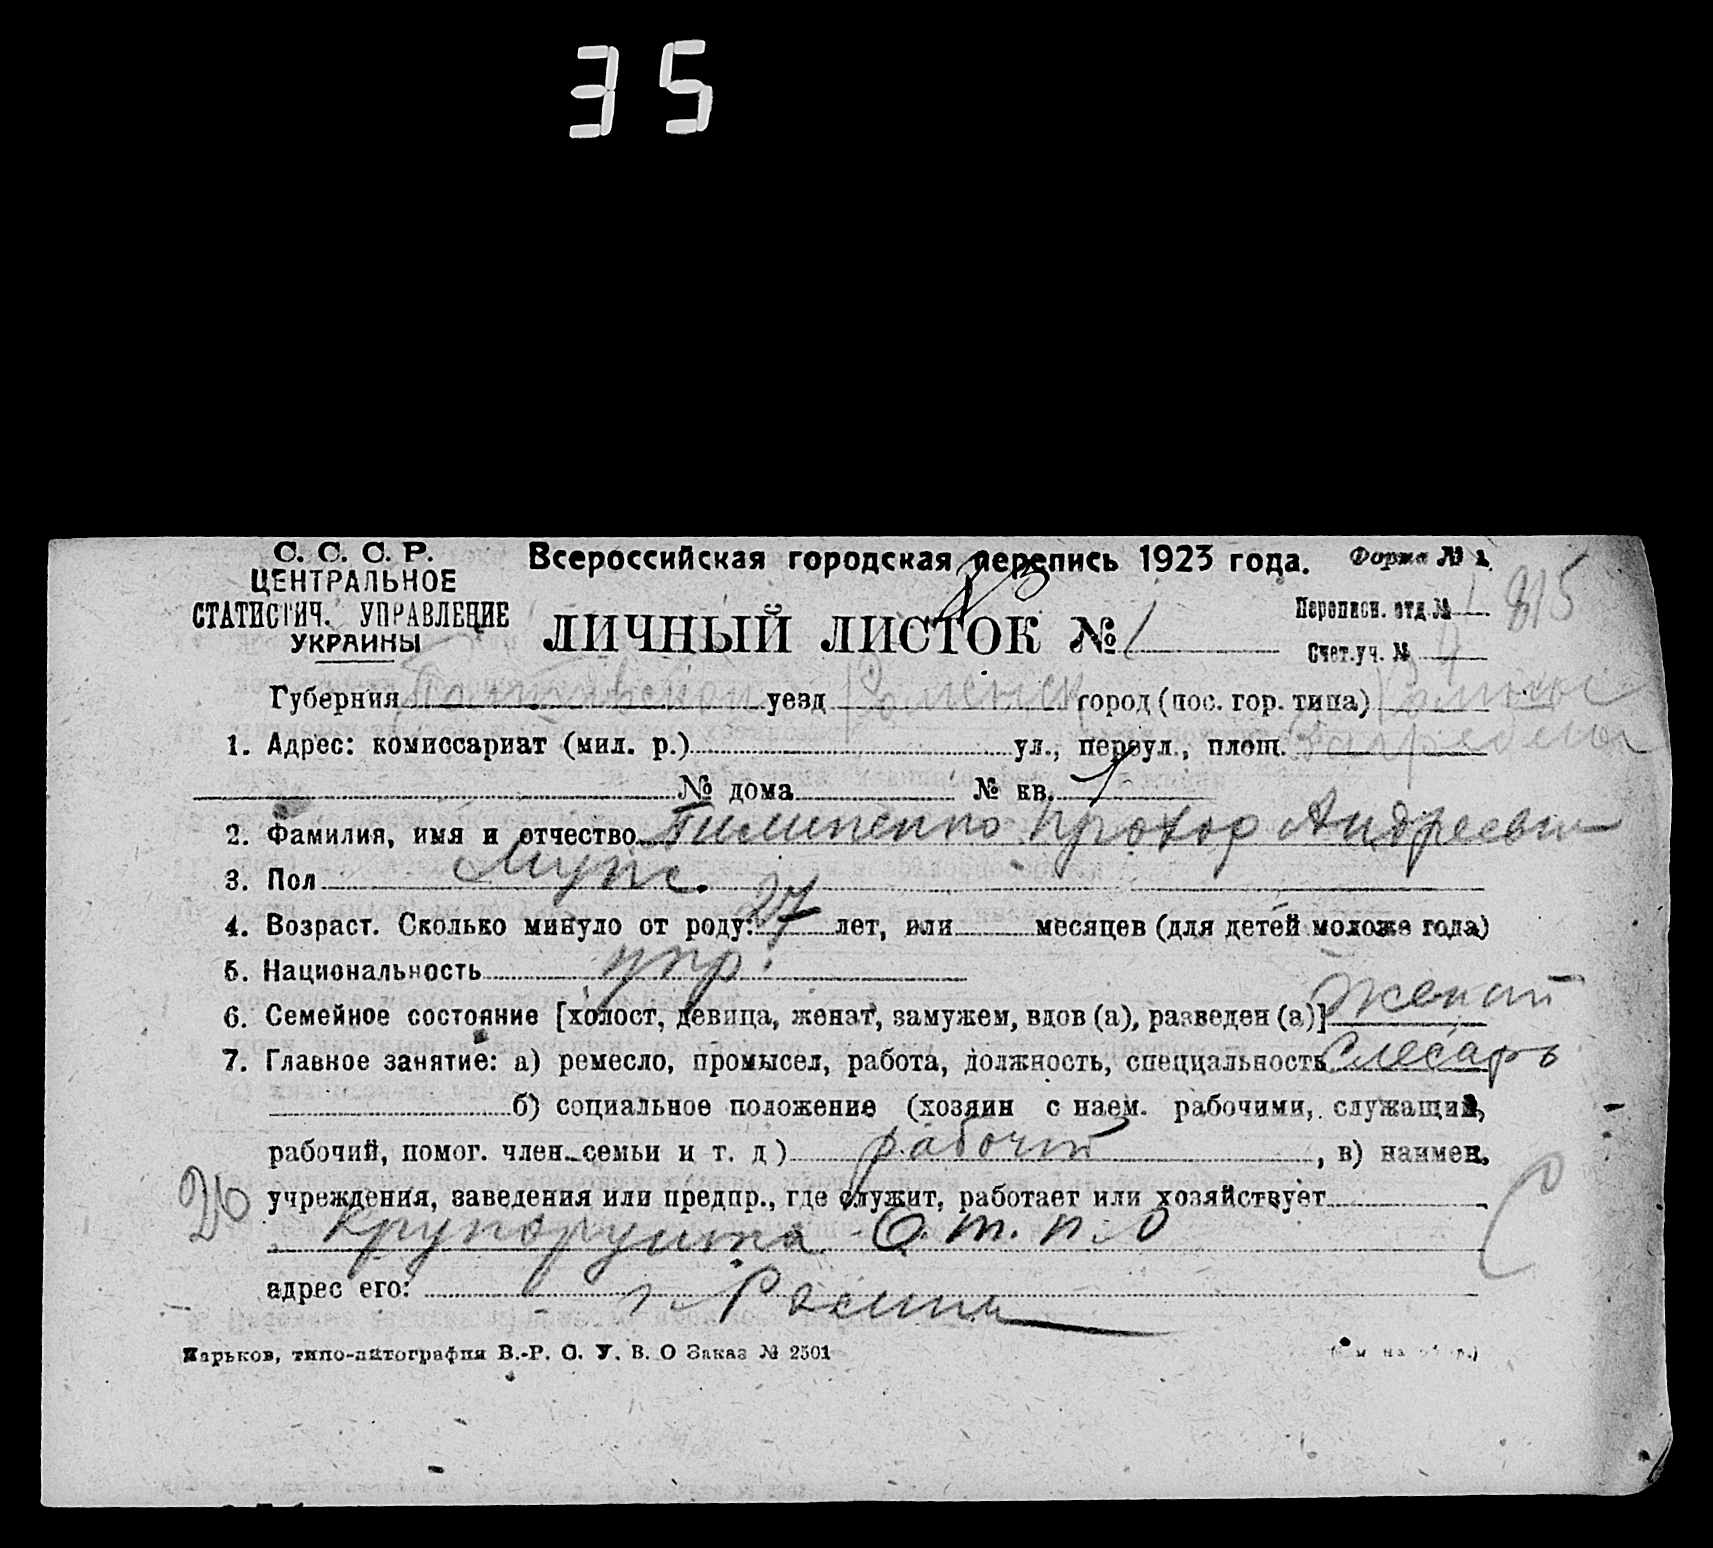 35
С. С. С. Р.
ЦЕНТРАЛЬНОЕ
СТАТИСТИЧ. УПРАВЛЕНИЕ
УКРАИНЫ
Всероссийская городская перепись 1923 года.
Форма № 1
ЛИЧНЫЙ ЛИСТОК № 1
Переписн. отд. № 1
815
Счет.уч. № 4
Губерния Полтавской уезд Роменск город (пос. гор. типа) Ромны
1. Адрес: комиссариат (мил. р.) ул., переул., площ.
№ дома № кв. 1
2. Фамилия, имя и отчество Пилипенко Прохор Андреевич
3. Пол муж.
4. Возраст. Сколько минуло от роду: 27 лет, или месяцев (для детей моложе года)
5. Национальность укр.
6. Семейное состояние [холост, девица, женат, замужем, вдов (а), разведен (а)] женат
7. Главное занятие: а) ремесло, промысел, работа, должность, специальность Слесарь
б) социальное положение (хозяин с наем. рабочими, служащий,
рабочий, помог. член семьи и т. д) рабочий, в) наимен.
20 учреждения, заведения или предпр., где служит, работает или хозяйствует
С. т. п. о
адрес его: г. Ромны
Харьков, типо-литография В.-Р. С. У. В. О Заказ № 2501